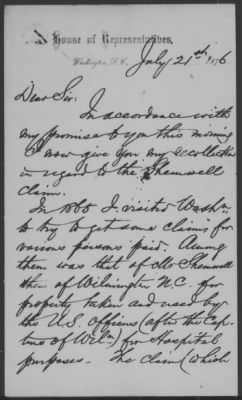 House of Representatives,
Washington, D.C.
July 21st 1876
Dear Sir:
In accordance with
my promise to you this morning
I now give you my recollection
in regard to the Shemwell
claim.
In 1866 I visited Washn
to try to get some claims for
various persons paid. Among
them was that of Shemwell
then of Wilmington N.C. for
property taken and used by
the U.S. Officers (after the Cap-
ture of Wiln) for Hospital
purposes - The claim (which